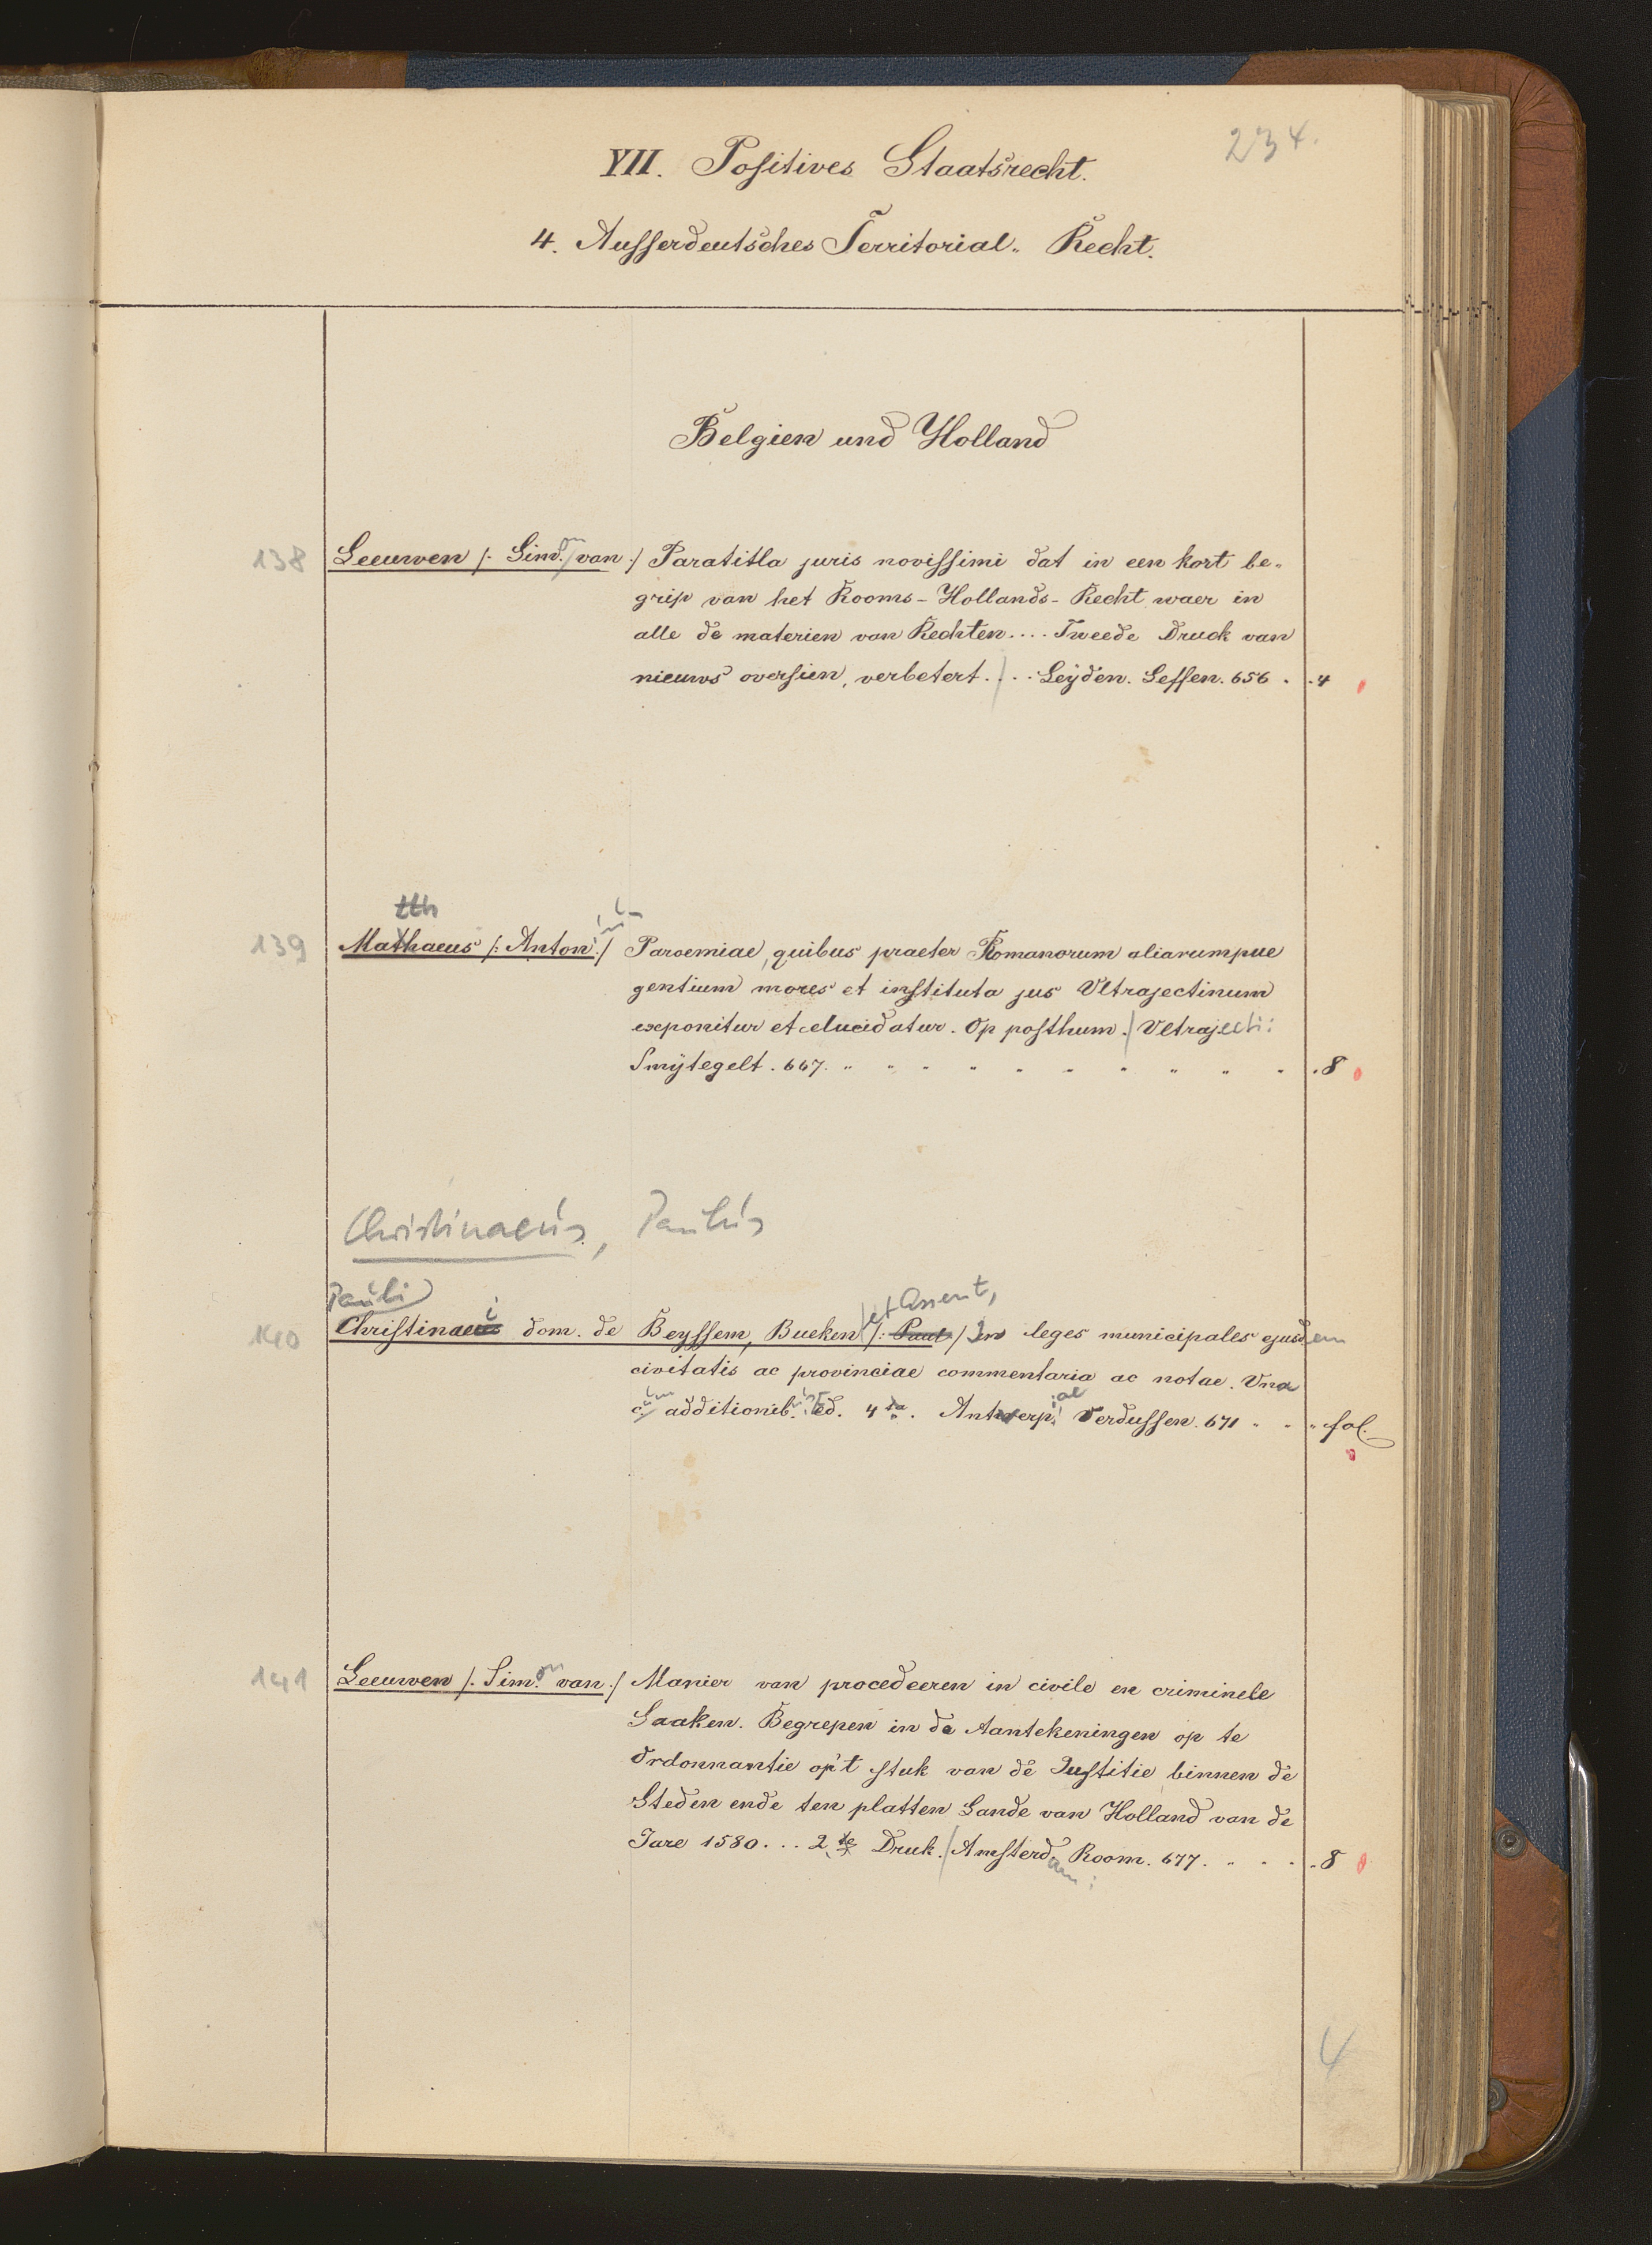 234.
VII. Positives Staatsrecht.
4. Ausserdeutsches Territorial- Recht.
Belgien und Holland
138 Leeuwen /: Simon van :/ Paratitla juris novissimi dat in een kort be-
grip van het Rooms-Hollands-Recht waer in
alle de materien van Rechten.... Tweede Druck van
nieuws oversien, verbetert.... Leyden. Leffen. 656 . . 4
tth
139 Mathaeus /: Anton :/ Paroemiae, quibus praeter Romanorum aliarumque
gentium mores et instituta jus Ultrajectinum
exponitur et elucidatur. Op posthum. / Ultrajecti:
Smytegelt. 667. . 8
Christinaeus, Paulus
Pauli et Assent,
140 Christinaei dom. de Beyssem, Bueken /: Paul :/ In leges municipales ejusdem
civitatis ac provinciae commentaria ac notae. Una
cum additionib. Ed. 4ta. Antverpiae Verdussen. 671 . . . fol.
141 Leeuwen /: Simon van :/ Manier van procedeeren in civile en criminele
Saaken. Begrepen in de Aantekeningen op te
Ordonnantie op't stuk van de Justitie binnen de
Steden ende ten platten Lande van Holland van de
Jare 1580... 2te Druk. / Amsterdam: Room. 677. . . . 8
4